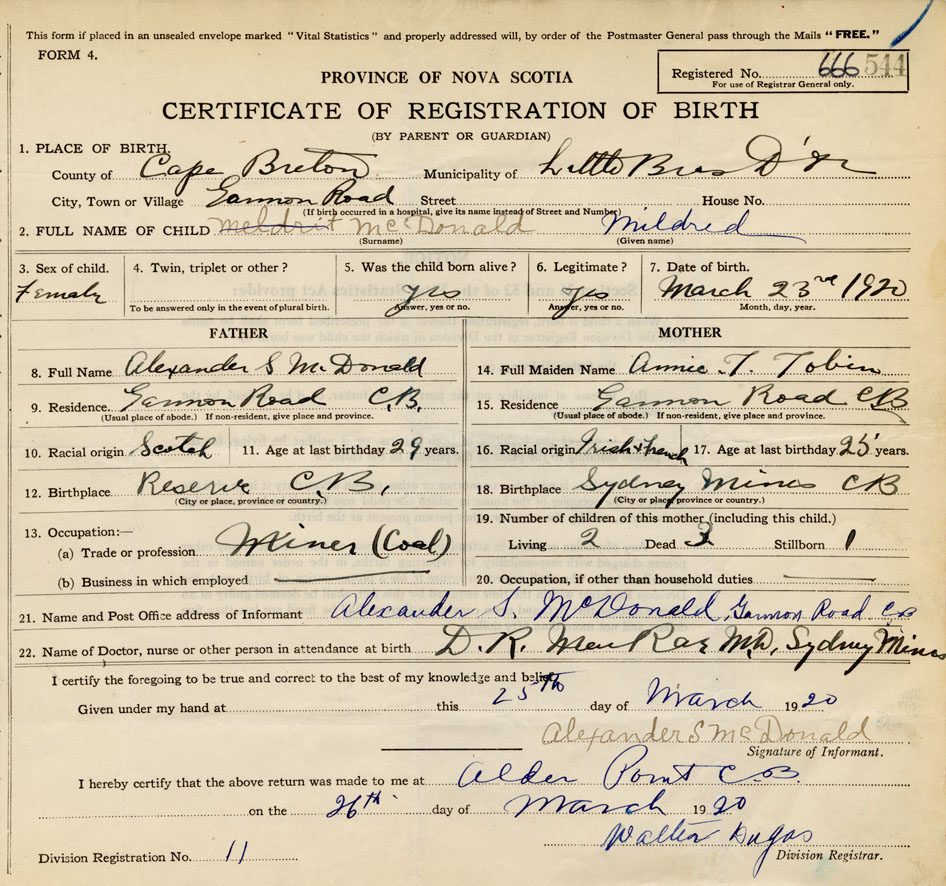 This form if placed in an unsealed envelope marked "Vital Statistics" and properly addressed will, by order of the Postmaster General pass through the Mails "FREE."
FORM 4.
Registered No. 666 544
For use of Registrar General only.
PROVINCE OF NOVA SCOTIA
CERTIFICATE OF REGISTRATION OF BIRTH
(BY PARENT OR GUARDIAN)
1. PLACE OF BIRTH.
County of Cape Breton Municipality of Little Bras D'or
City, Town or Village Gannon Road Street House No.
(If birth occurred in a hospital, give its name instead of Street and Number)
2. FULL NAME OF CHILD meldrit McDonald Mildred
(Surname) (Given name)
3. Sex of child. 4. Twin, triplet or other? 5. Was the child born alive? 6. Legitimate? 7. Date of birth.
Female yes yes March 23rd 1920
To be answered only in the event of plural birth. Answer, yes or no. Answer, yes or no. Month, day, year.
FATHER
8. Full Name Alexander S McDonald
9. Residence Gannon Road C.B.
(Usual place of abode.) If non-resident, give place and province.
10. Racial origin Scotch 11. Age at last birthday 29 years.
12. Birthplace Reserve C.B.
(City or place, province or country.)
13. Occupation:—
(a) Trade or profession Miner (Coal)
(b) Business in which employed
MOTHER
14. Full Maiden Name Annie T. Tobin
15. Residence Gannon Road CB
(Usual place of abode.) If non-resident, give place and province.
16. Racial origin Irish + French 17. Age at last birthday 25 years.
18. Birthplace Sydney Mines CB
(City or place, province or country.)
19. Number of children of this mother (including this child.)
Living 2 Dead 3 Stillborn 1
20. Occupation, if other than household duties
21. Name and Post Office address of Informant Alexander S. McDonald, Gannon Road CB
22. Name of Doctor, nurse or other person in attendance at birth D. R. MacRae M.D., Sydney Mines
I certify the foregoing to be true and correct to the best of my knowledge and belief.
Given under my hand at this 25th day of March 1920
Alexander S McDonald
Signature of Informant.
I hereby certify that the above return was made to me at Alder Point C.B.
on the 26th day of March 1920
Walter Dugas
Division Registration No. 11 Division Registrar.